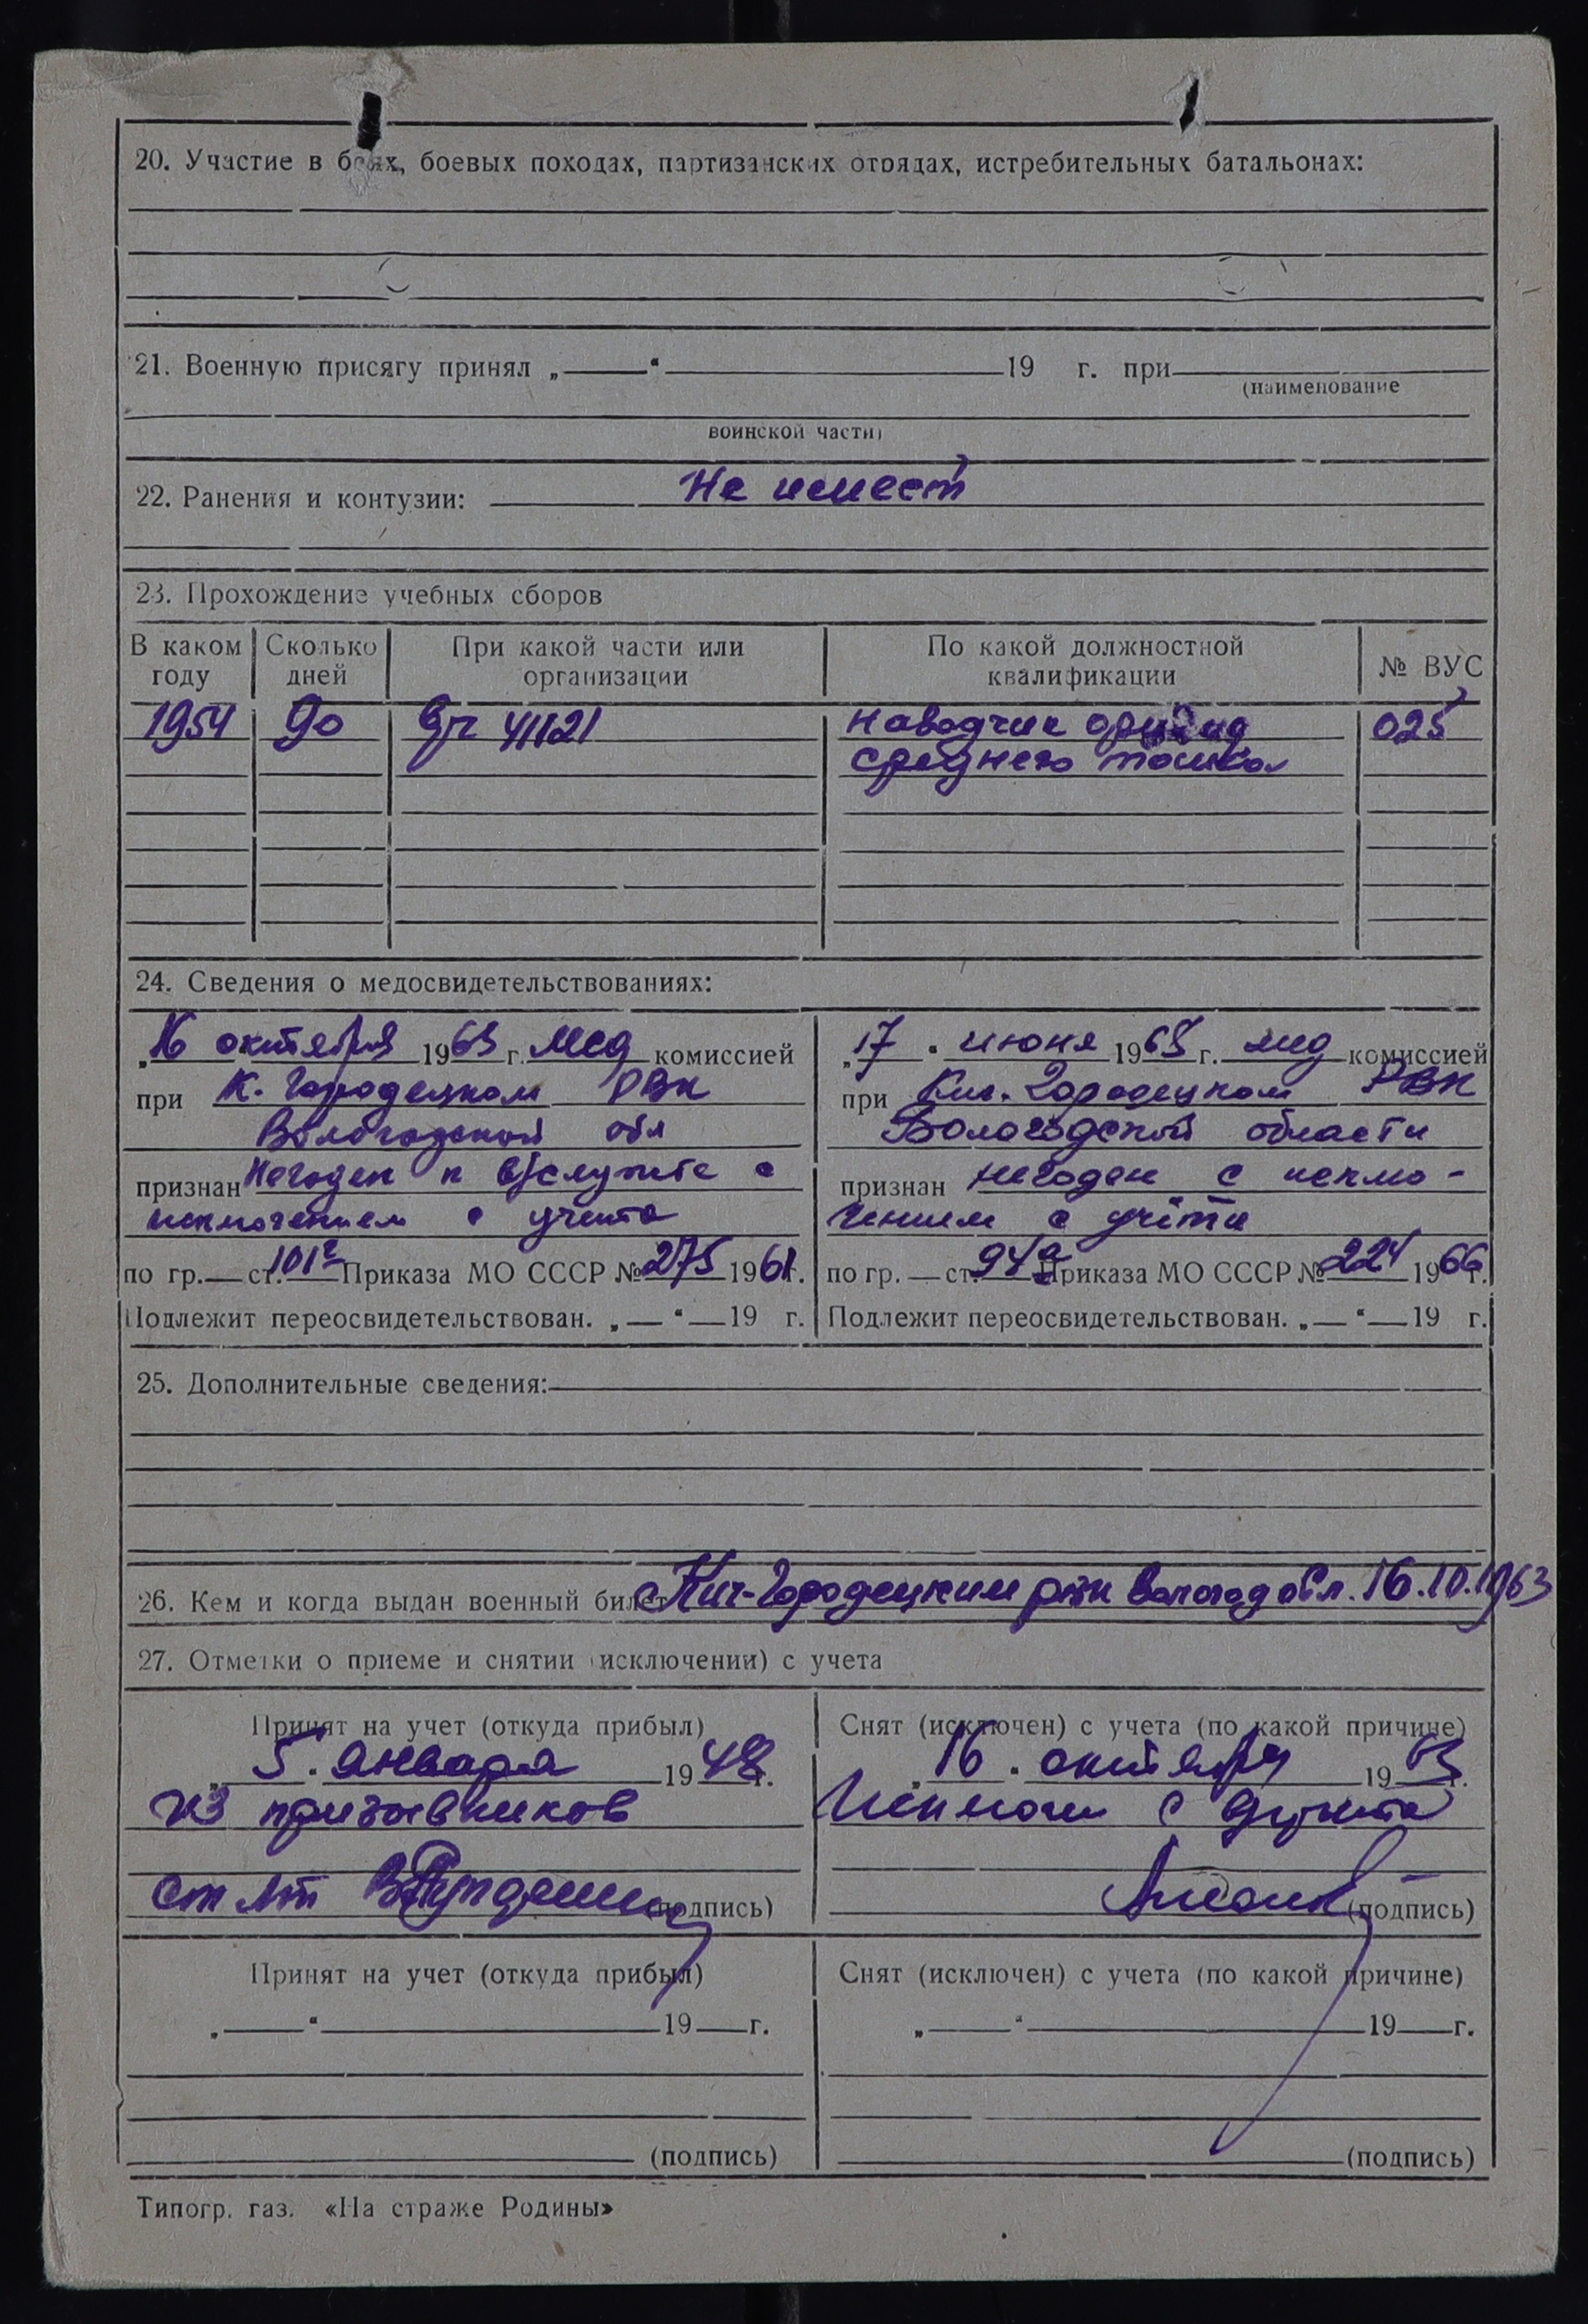 20. Участие в боях, боевых походах, партизанских отрядах, истребительных батальонах:
21. Военную присягу принял „ “ 19 г. при
(наименование
воинской части)
22. Ранения и контузии: Не имеет
23. Прохождение учебных сборов
В каком году Сколько дней При какой части или организации По какой должностной квалификации № ВУС
1954 90 в/ч 41121 наводчик орудия 025
среднего танка
24. Сведения о медосвидетельствованиях:
„16 октября 1963 г. мед комиссией
при К. Городецком РВК
Вологодской обл
признан Негоден к в/службе с
исключением с учета
по гр. — ст. 101г Приказа МО СССР № 275 1961 г.
Подлежит переосвидетельствован. „ — “ — 19 г.
„17 “ июня 196 г. мед комиссией
при Кич. Городецком РВК
Вологодской области
признан негоден с исклю-
чением с учёта
по гр. — ст. 94а Приказа МО СССР № 224 1966 г.
Подлежит переосвидетельствован. „ — “ — 19 г.
25. Дополнительные сведения:
26. Кем и когда выдан военный билет Кич-Городецким рвк Вологод обл. 16.10.1963
27. Отметки о приеме и снятии (исключении) с учета
Принят на учет (откуда прибыл)
„ 5 “ января 1948 г.
из призывников
ст лт (подпись)
Снят (исключен) с учета (по какой причине)
„ 16 “ октября 1963 г.
Исключен с учета
(подпись)
Принят на учет (откуда прибыл)
„ — “ 19 — г.
(подпись)
Снят (исключен) с учета (по какой причине)
„ — “ 19 — г.
(подпись)
Типогр. газ. «На страже Родины»